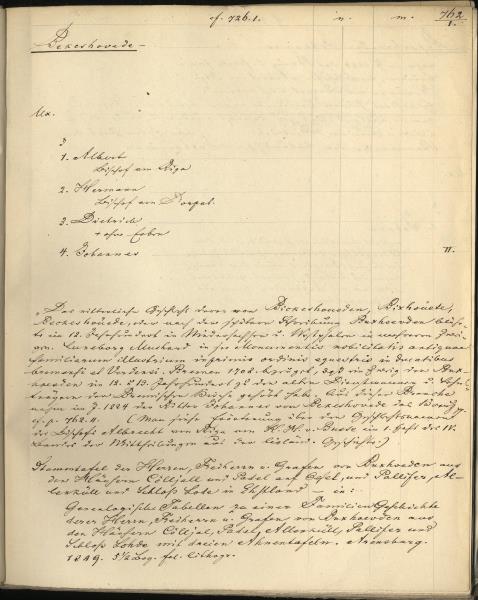 cf. 726.1. n. m. 762
I.
Bekeshovede –
Ux.
3
1. Albert
Bischof von Riga
2. Hermann
Bischof von Dorpat.
3. Dietrich
† ohne Erben
4. Johannes II.
„Das ritterliche Geschlecht derer von Bickeshoueden, Bixhöuete,
Beckeshöuede, oder nach der spätern Schreibung Buxhoevden blüh-
te im 12. Jahrhundert in Niedersachsen u. Westphalen in mehreren Zwei-
gen. Luneberg Mushard in s. Monumentis nobilitatis antiquae
familiarum illustrium inprimis ordinis equestris in ducatibus
bremensi et Verdensi. Bremen 1708. bezeugt, daß ein Zweig der Bux-
hoevden im 12. u. 13. Jahrhundert zu den alten Dienstmannen u. Vasal
der Bremischen Kirche gehört habe. Aus dieser Branche
nahm im J. 1224 der Ritter Johannes von Bexhovede das Kreuz
cf. p. 762. II. (Man siehe Erläuterung über den Geschlechtsnamen
des Bischofs Albrecht von Riga von H. H. v. Busse im 1. Heft des IV.
Bandes der Mittheilungen aus der livländ. Geschichte.)
Stammtafel der Herren, Freiherrn u. Grafen von Buxhoevden aus
den Häusern Cölljall und Padel auf Oesel, und Pallifer, Al-
lerküll und Schloss Lode in Ehstland – in:
Genealogische Tabellen zu einer Familien Geschichte
derer Herrn, Freiherrn u. Grafen von Buxhoevden aus
den Häusern Cölljal, Padel, Allenküll, Pallifer und
Schloss Lohde mit dreien Ahnentafeln. Arensburg.
1849. 5½ Bog. fol. lithogr.